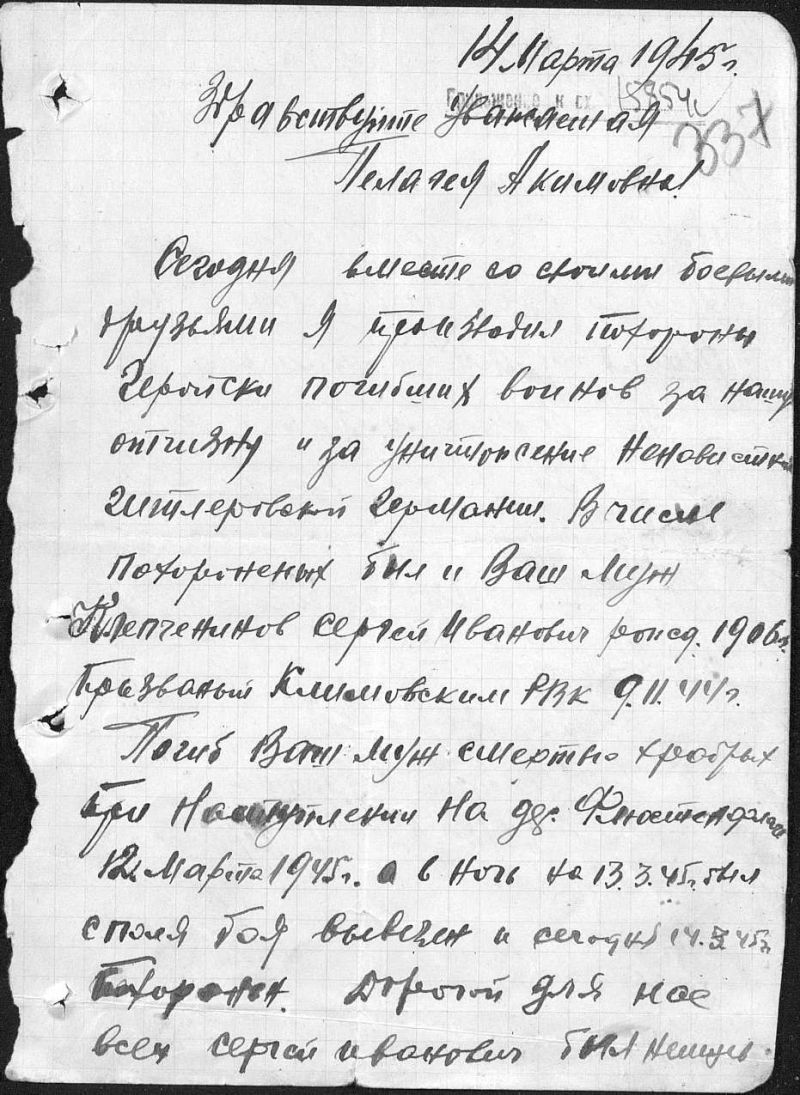 14 Марта 1945 г.
15954с
337
Здравствуйте уважаемая
Пелагея Акимовна!
Сегодня вместе со своими боевыми
друзьями я производил похороны
геройски погибших воинов за нашу
отчизну и за уничтожение ненавистной
гитлеровской Германии. В числе
похороненых был и Ваш муж
Клепчеников Сергей Иванович рожд. 1906 г.
Призваный Климовским РВК 9.11.44 г.
Погиб Ваш муж смертью храбрых
при наступлении на дер.
12 Марта 1945 г. а в ночь на 13.3.45 г. был
с поля боя вывезен и сегодня 14.3.45 г.
похоронен. Дорогой для нас
всех Сергей Иванович был